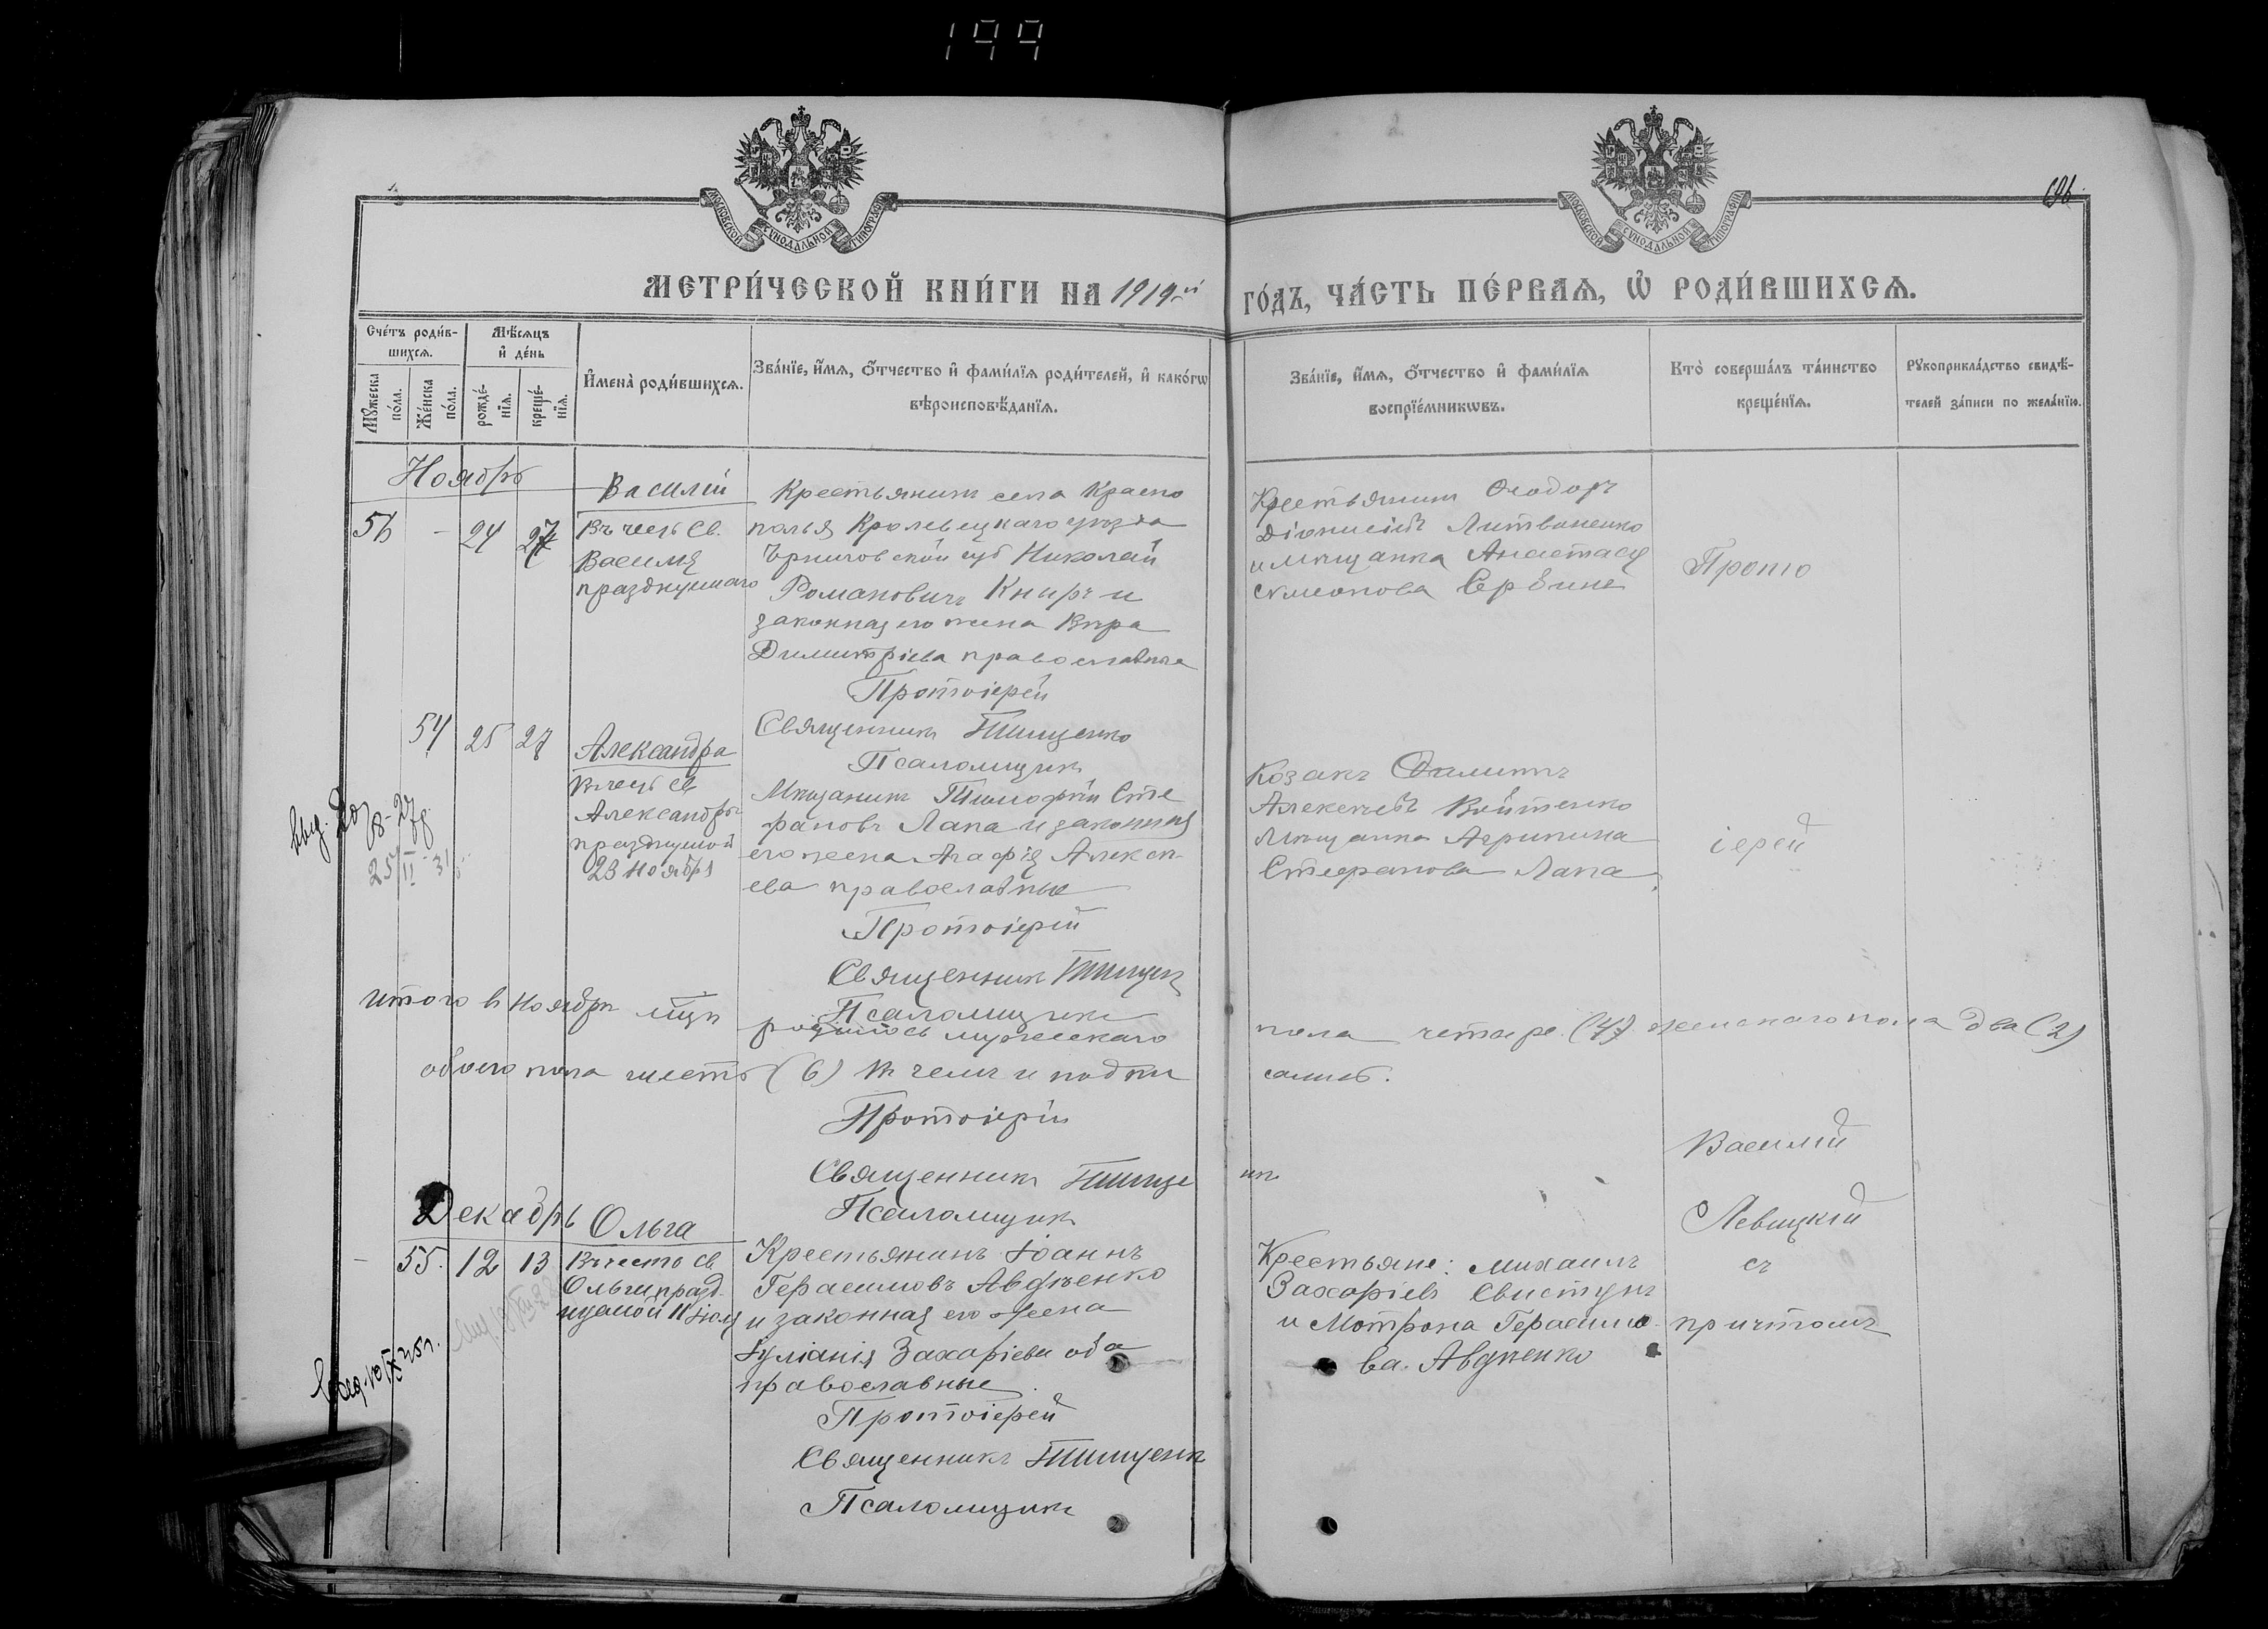 199
МОСКОВСКОЙ СѴНОДАЛЬНОЙ ТИПОГРАФІИ
МОСКОВСКОЙ СѴНОДАЛЬНОЙ ТИПОГРАФІИ
МЕТРИ́ЧЕСКОЙ КНИ́ГИ НА 1919-й ГО́ДЪ, ЧА́СТЬ ПЕ́РВАѦ, Ѽ РОДИ́ВШИХСѦ.
Сче́тъ роди́в-
шихсѧ.
Мѹ́жеска
по́ла.
Же́нска
по́ла.
Мѣ́сѧцъ
и҆ де́нь
рожде́-
нїѧ.
креще́-
нїѧ.
И҆мена̀ роди́вшихсѧ.
Зва́нїе, и҆́мѧ, ѻ҆́тчество и҆ фами́лїѧ роди́телей, и҆ како́гѡ
вѣроисповѣ́данїѧ.
Зва́нїе, и҆́мѧ, ѻ҆́тчество и҆ фами́лїѧ
воспрїе́мникѡвъ.
Кто̀ соверша́лъ та́инство
креще́нїѧ.
Рѹкоприкла́дство свидѣ́-
телей за́писи по жела́нїю.
Ноябрь
56 - 24 27
Василій
Въ честь Св.
Василія
празднуемаго
Крестьянинъ села Красно
полья Кролевецкаго уѣзда
Черниговской губ Николай
Романовичъ Книръ и
законная его жена Вѣра
Димитріева православные
Протоіерей
Священникъ Тищенко
Псаломщикъ
Крестьянинъ Ѳеодоръ
Діонисіевъ Литвиненко
и мѣщанка Анастасія
Симеонова
Прото
54 25 27
Александра
въ честь Св
Александры
празднуемой
23 ноября
Мѣщанинъ Тимофей Сте
фановъ Лапа и законная
его жена Агафія Алексѣ-
ева православные
Протоіерей
Священникъ Тищен
Псаломщикъ
Козакъ Филиппъ
Алексѣевъ Войтенко
Мѣщанка Агрипина
Стефанова Лапа
іерей
25/II-31
итого в ноябрѣ мцѣ родилось мужескаго пола четыре (4) женскаго пола два (2)
обоего пола шесть (6) въ чемъ и подпи самись.
Протоіерей
Священникъ Тищенк
Псаломщикъ
Василій
Левицкій
съ
причтомъ
Декабрь
- 55. 12 13
Ольга
Въ честь св
Ольги празд-
нуемой 11 Іюля
Крестьянинъ Іоаннъ
Герасимовъ Авдѣенко
и законная его жена
Іуліанія Захаріева оба
православные
Протоіерей
Священникъ Тищенк
Псаломщикъ
Крестьяне: Михаилъ
Захаріевъ Свистунъ
и Мотрона Герасимо-
ва Авдѣенко